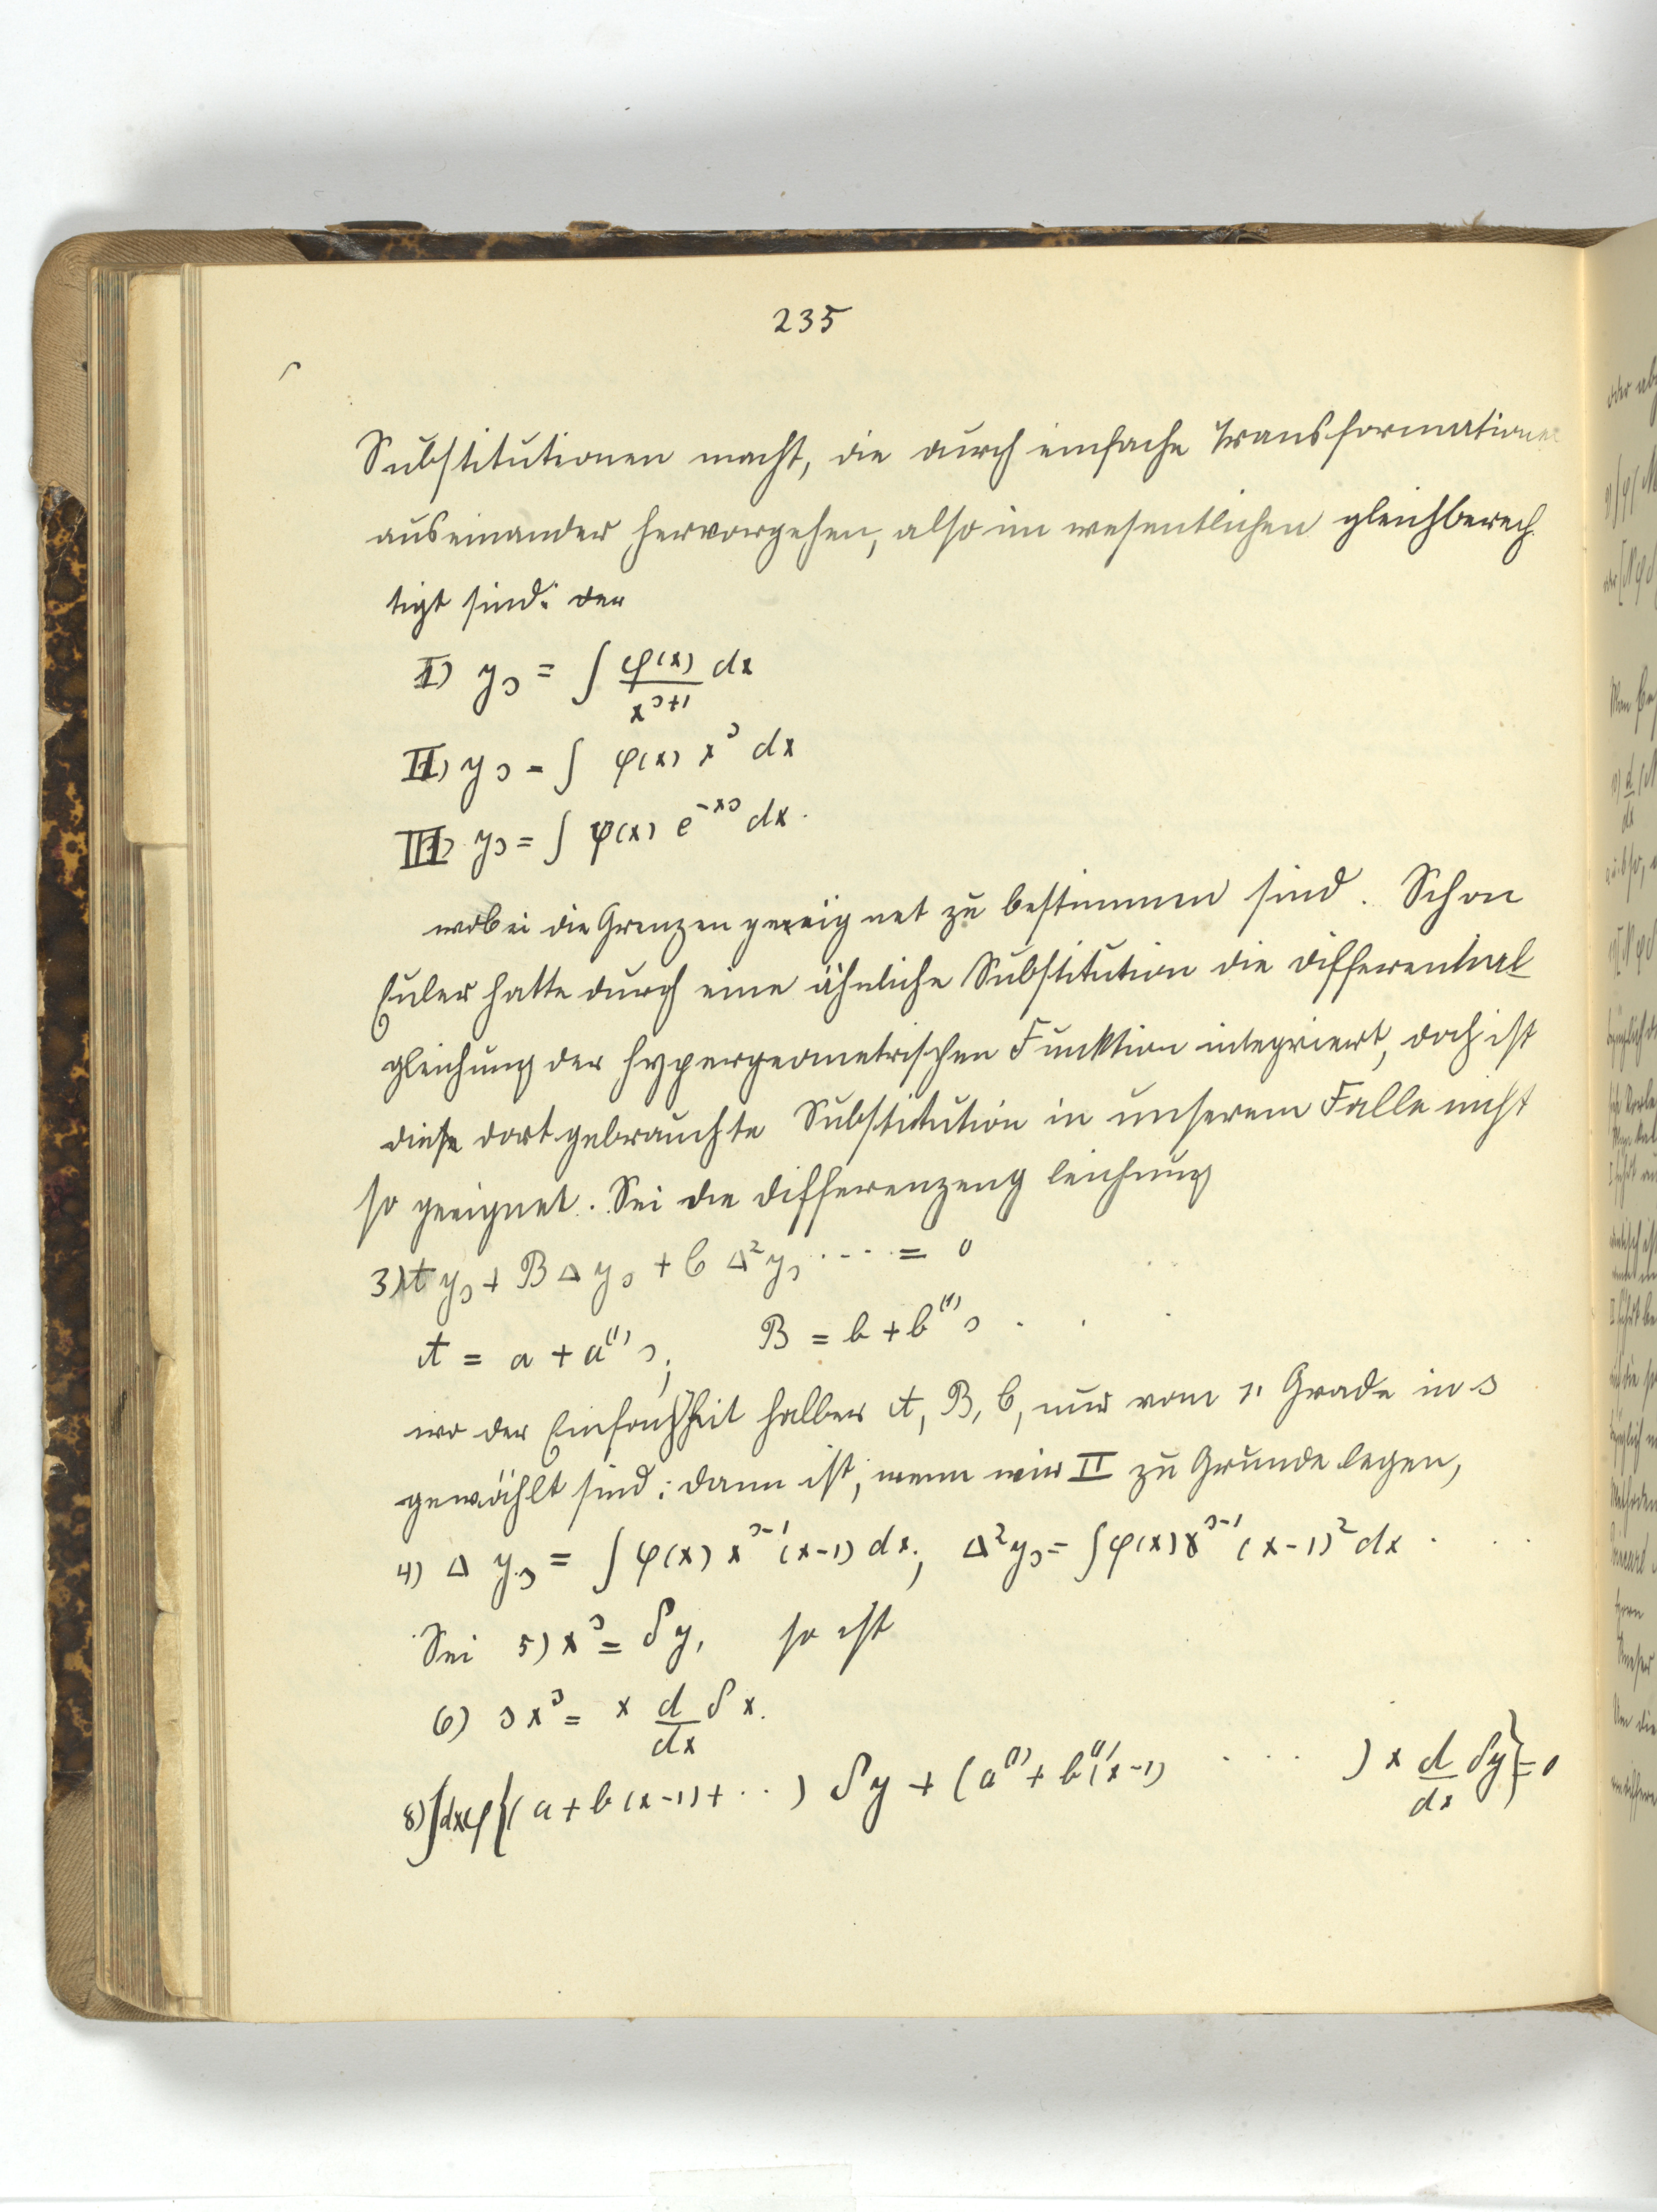 235
Substitutionen macht, die durch einfache Transformationen
auseinander hervorgehen, also im wesentlichen gleichberech
tigt sind: der
I) y_s = ∫ φ(x)/x^{s+1} dx
II) y_s = ∫ φ(x) x^s dx
III) y_s = ∫ φ(x) e^{-xs} dx.
wobei die Grenzen geeignet zu bestimmen sind. Schon
Euler hatte durch eine ähnliche Substitution die Differential
gleichung der hypergeometrischen Funktion integriert, doch ist
diese dort gebrauchte Substitution in unserem Falle nicht
so geeignet. Sei die Differenzengleichung
3) A y_s + B Δ y_s + C Δ² y_s ... = 0
A = a + a^{(1)} s; B = b + b^{(1)} s . . .
wo der Einfachheit halber A, B, C, nur vom 1. Grade in s
gewählt sind: dann ist, wenn wir II zu Grunde legen,
4) Δ y_s = ∫ φ(x) x^{s-1} (x-1) dx; Δ² y_s = ∫ φ(x) x^{s-1} (x-1)² dx . . .
Sei 5) x^s = δy, so ist
6) s x^s = x d/dx δ x.
8) ∫dxφ{(a + b(x-1) + ..) δy + (a^{(1)} + b^{(1)}(x-1) .... ) x d/dx δy} = 0